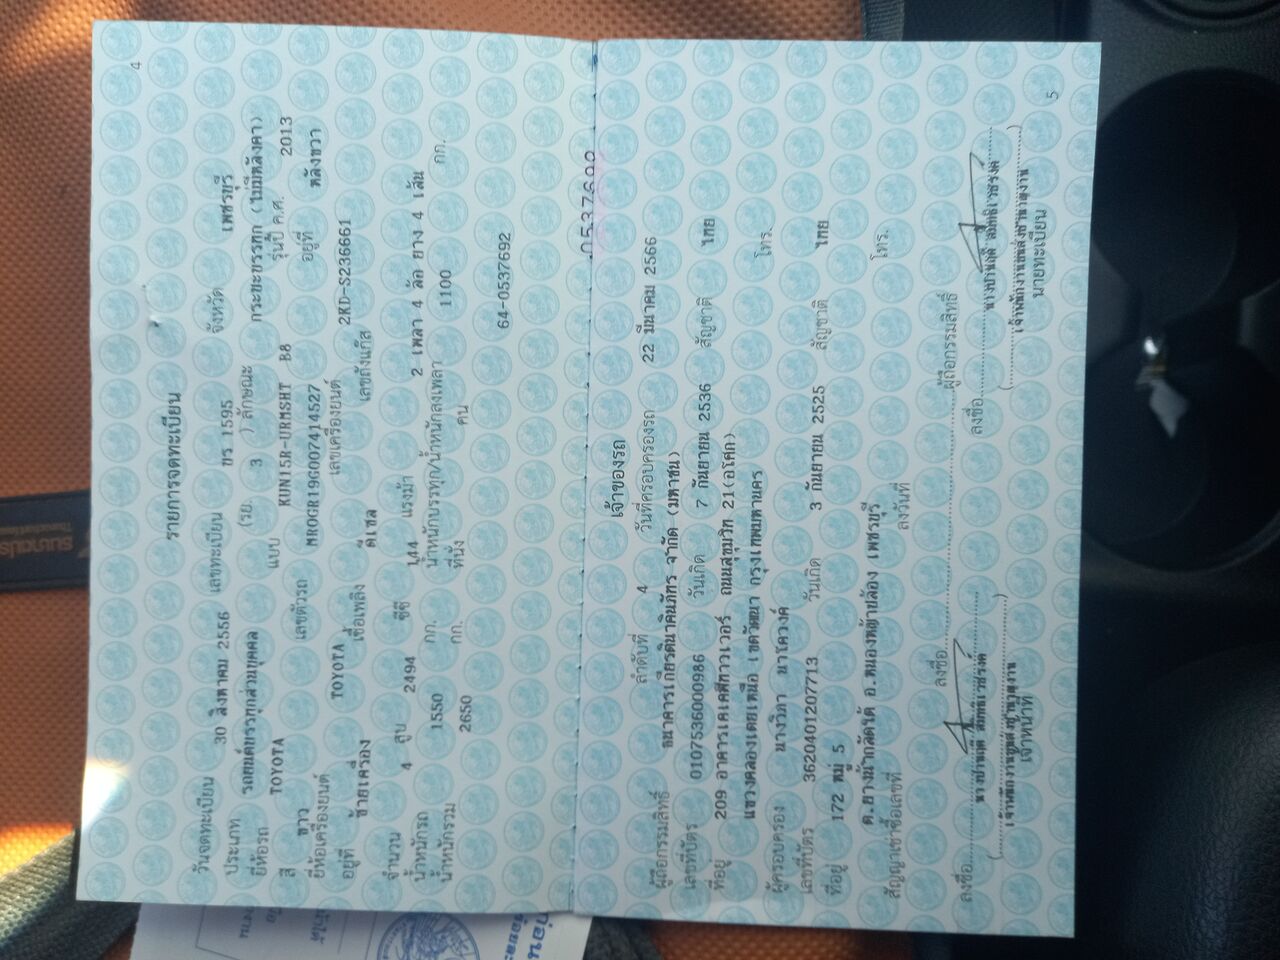 4
รายการจดทะเบียน
วันจดทะเบียน 30 สิงหาคม 2556 เลขทะเบียน ขร 1595 จังหวัด เพชรบุรี
ประเภท รถยนต์บรรทุกส่วนบุคคล (รย. 3 ) ลักษณะ กระบะบรรทุก (ไม่มีหลังคา)
ยี่ห้อรถ TOYOTA แบบ KUN15R-URMSHT B8 รุ่นปี ค.ศ. 2013
สี ขาว เลขตัวรถ MROGR19G007414527 อยู่ที่ หลังขวา
ยี่ห้อเครื่องยนต์ TOYOTA เลขเครื่องยนต์ 2KD-S236661
อยู่ที่ ซ้ายเครื่อง เชื้อเพลิง ดีเซล เลขถังแก๊ส
จำนวน 4 สูบ 2494 ซีซี 144 แรงม้า 2 เพลา 4 ล้อ ยาง 4 เส้น
น้ำหนักรถ 1550 กก. น้ำหนักบรรทุก/น้ำหนักลงเพลา 1100 กก.
น้ำหนักรวม 2650 กก. ที่นั่ง คน
64-0537692
0537692
เจ้าของรถ
ลำดับที่ 4 วันที่ครอบครองรถ 22 มีนาคม 2566
ผู้ถือกรรมสิทธิ์ ธนาคารเกียรตินาคินภัทร จำกัด (มหาชน)
เลขที่บัตร 0107536000986 วันเกิด 7 กันยายน 2536 สัญชาติ ไทย
ที่อยู่ 209 อาคารเคเคพีทาวเวอร์ ถนนสุขุมวิท 21(อโศก)
แขวงคลองเตยเหนือ เขตวัฒนา กรุงเทพมหานคร โทร.
ผู้ครอบครอง นางวิภา นาโควงค์
เลขที่บัตร 3620401207713 วันเกิด 3 กันยายน 2525 สัญชาติ ไทย
ที่อยู่ 172 หมู่ 5
ต.ยางน้ำกลัดใต้ อ.หนองหญ้าปล้อง เพชรบุรี โทร.
สัญญาเช่าซื้อเลขที่ ลงวันที่
ลงชื่อ ผู้ถือกรรมสิทธิ์
ลงชื่อ ลงชื่อ
เจ้าหน้าที่ นายทะเบียน
5